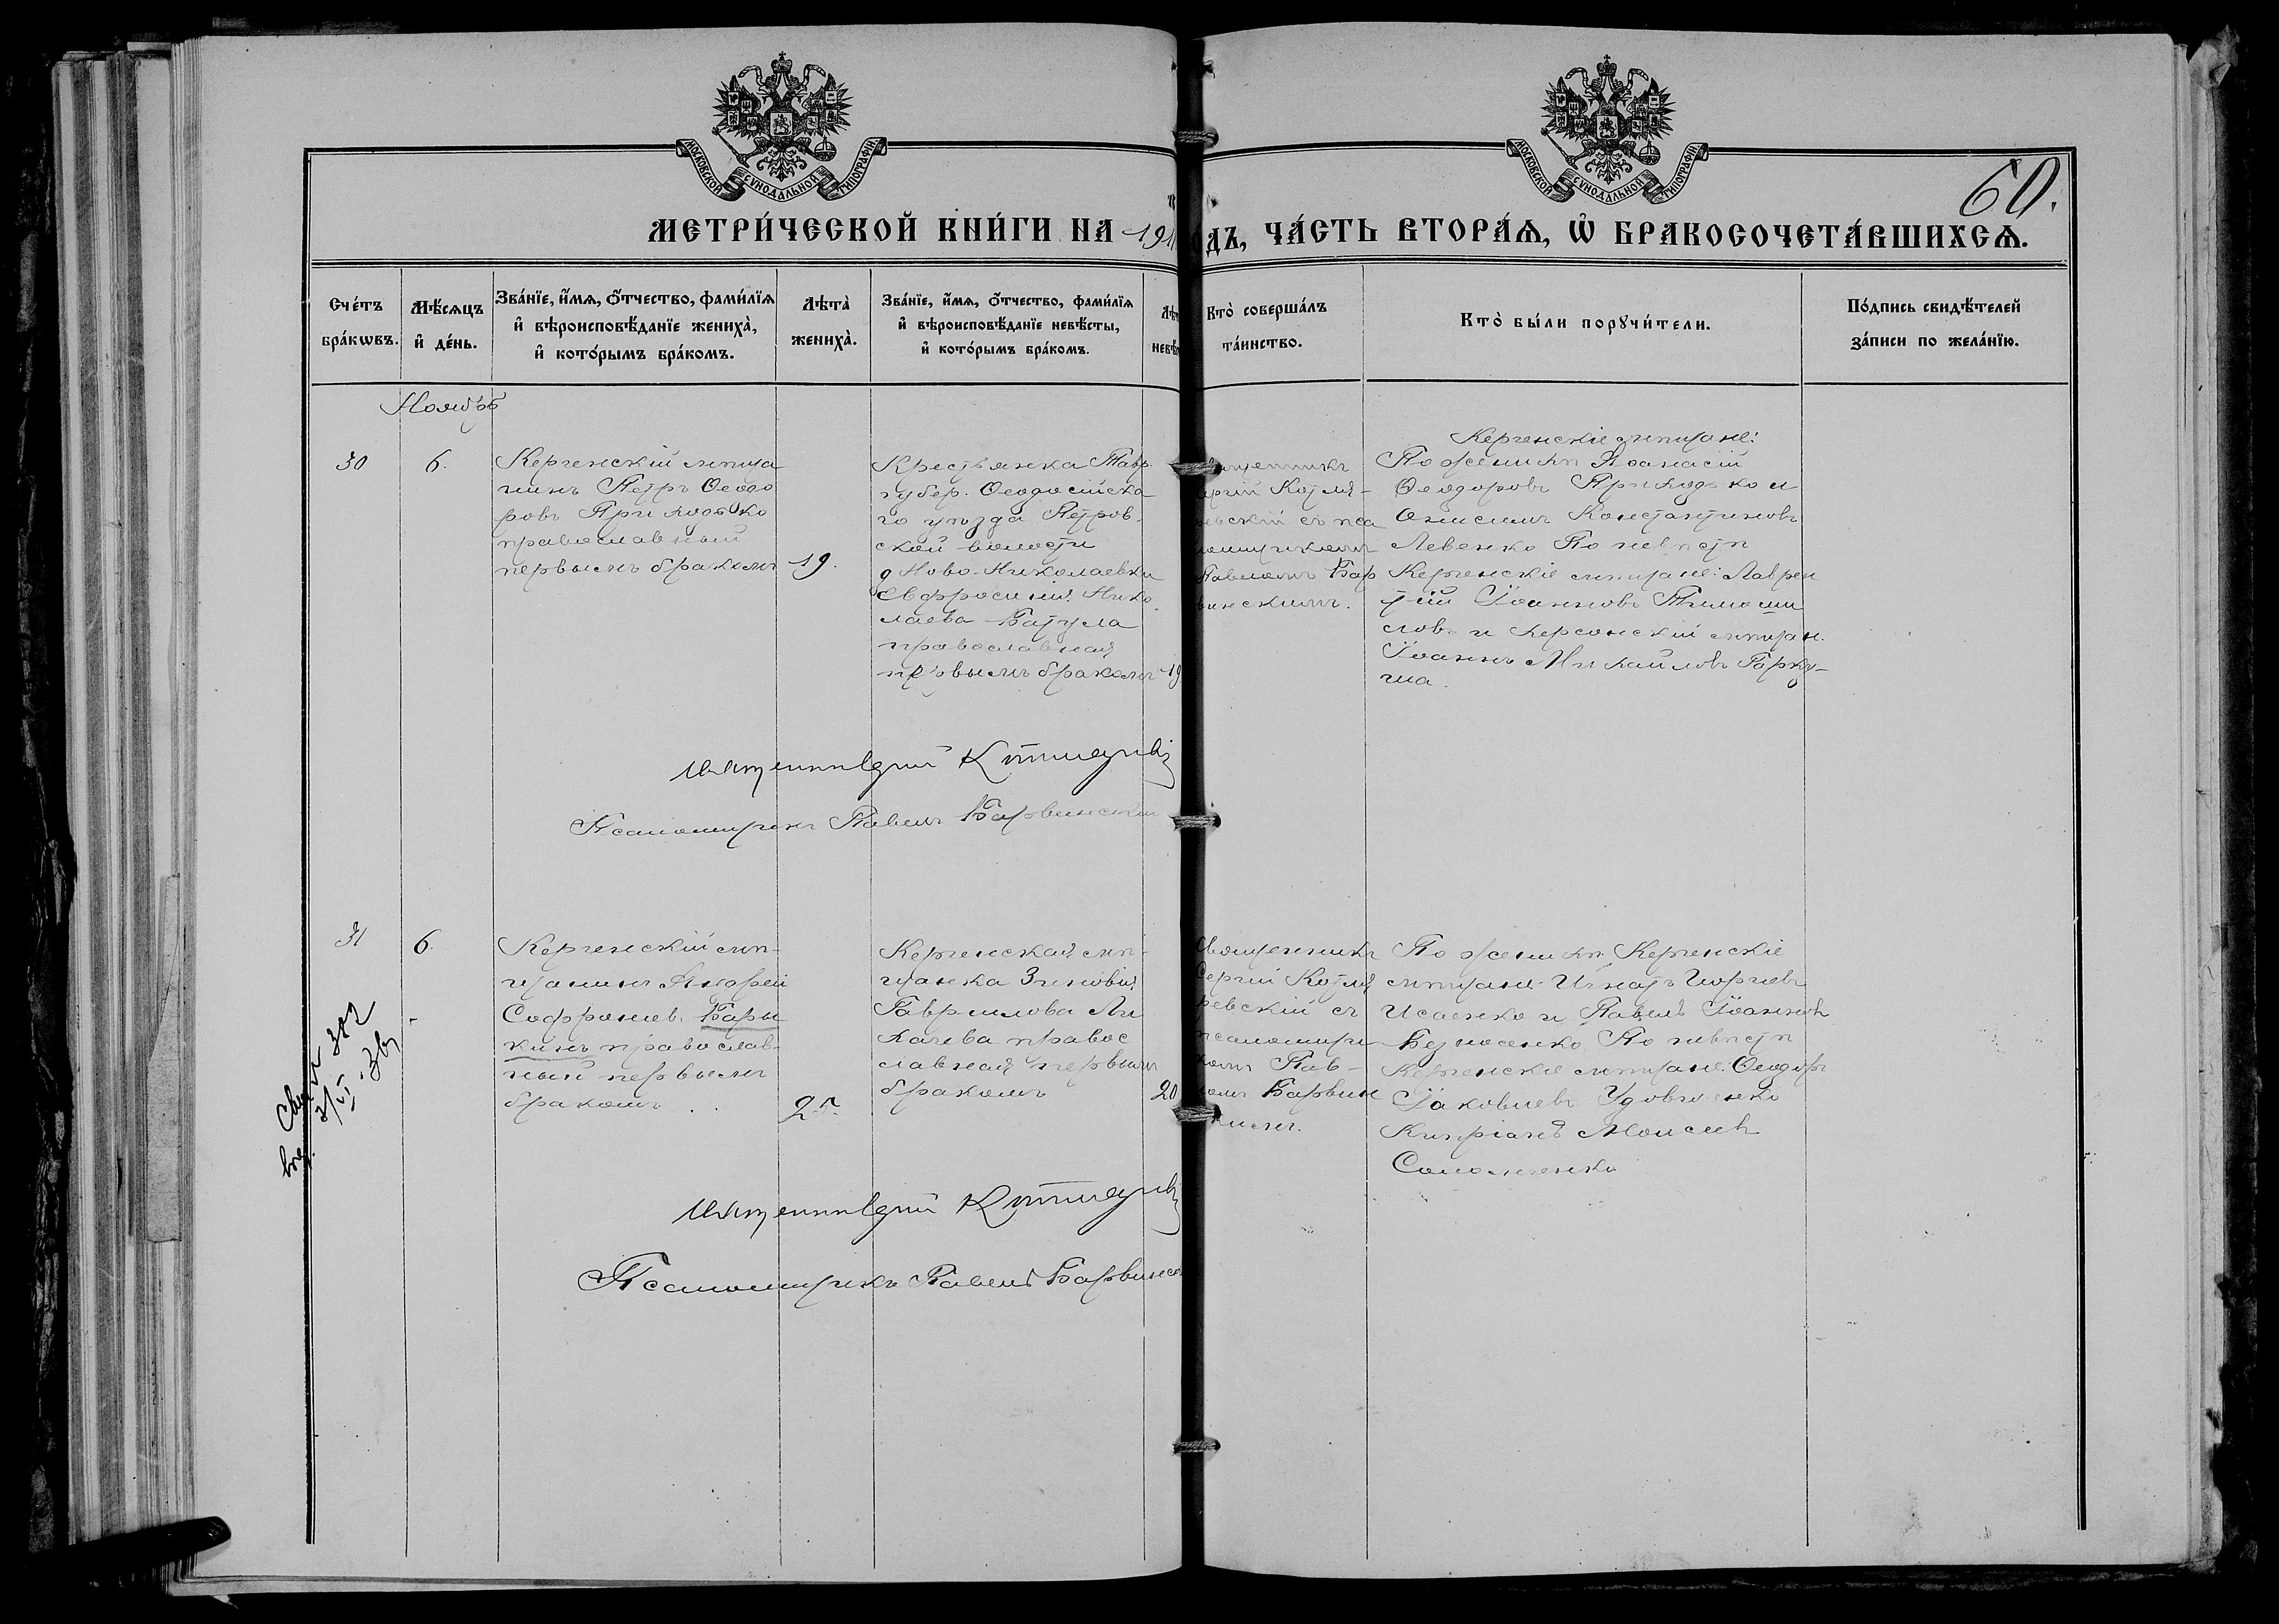 МОСКОВСКОЙ СУНОДАЛЬНОЙ ТИПОГРАФІИ
МОСКОВСКОЙ СУНОДАЛЬНОЙ ТИПОГРАФІИ
60.
МЕТРИ́ЧЕСКОЙ КНИ́ГИ НА 191
ОДЪ, ЧА́СТЬ ВТОРА́Ѧ, Ѡ҆ БРАКОСОЧЕТА́ВШИХСѦ.
Сче́тъ бра́кѡвъ.
Мѣ́сѧцъ и҆ де́нь.
Зва́нїе, и҆́мѧ, ѻ҆́тчество, фами́лїѧ
и҆ вѣроисповѣ́данїе жениха̀,
и҆ кото́рымъ бра́комъ.
Лѣта̀ жениха̀.
Зва́нїе, и҆́мѧ, ѻ҆́тчество, фами́лїѧ
и҆ вѣроисповѣ́данїе невѣ́сты,
и҆ кото́рымъ бра́комъ.
Кто̀ соверша́лъ
та́инство.
Кто̀ бы́ли порꙋчи́тели.
По́дпись свидѣ́телей
за́писи по жела́нїю.
Ноябрь
30
6.
Керченскій мѣща
нинъ Петръ Ѳеодо
ровъ Приходько
православный
первымъ бракомъ
19.
Крестьянка Тавр.
губер. Ѳеодосійска
го уѣзда Петров
ской волости
д Ново-Николаевки
Евфросинія Нико
лаева Батула
православная
первымъ бракомъ
19
Котля-
ревскій съ пса
ломщикомъ
Павломъ Бар
винскимъ.
Керченскіе мѣщане:
По женихѣ Аѳанасій
Ѳеодоровъ Приходько и
Онисимъ Константиновъ
Левенко По невѣстѣ
Керченскіе мѣщане: Лаврен
тій Іоанновъ
и Херсонскій мѣщан.
Іоаннъ Михайловъ Гарку-
ша.
Псаломщикъ Павелъ Барвинскій
31
6.
Керченскій мѣ-
щанинъ Андрей
Софроніев. Бары
кинъ православ-
ный первымъ
бракомъ
25.
Керченская мѣ-
щанка Зиновія
Гавріилова Ли
хачева правос
славная первымъ
бракомъ
20
Священникъ
Сергій Котля
ревскій съ
псаломщи
комъ Пав-
ломъ Барвин
скимъ.
По женихѣ Керченскіе
мѣщане Игнатъ Георгіевъ
Исаенко и Павелъ Іоанновъ
Безносенко По невѣстѣ
Керченскіе мѣщане: Ѳеодоръ
Іаковлевъ Удовиченко
Кипріанъ Моисеев
Соломенко
Псаломщикъ Павелъ Барвинск